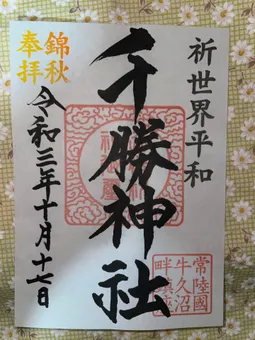 祈世界平和
千勝神社
常陸國
牛久沼
畔鎮座
錦秋
奉拝
令和三年十月十七日